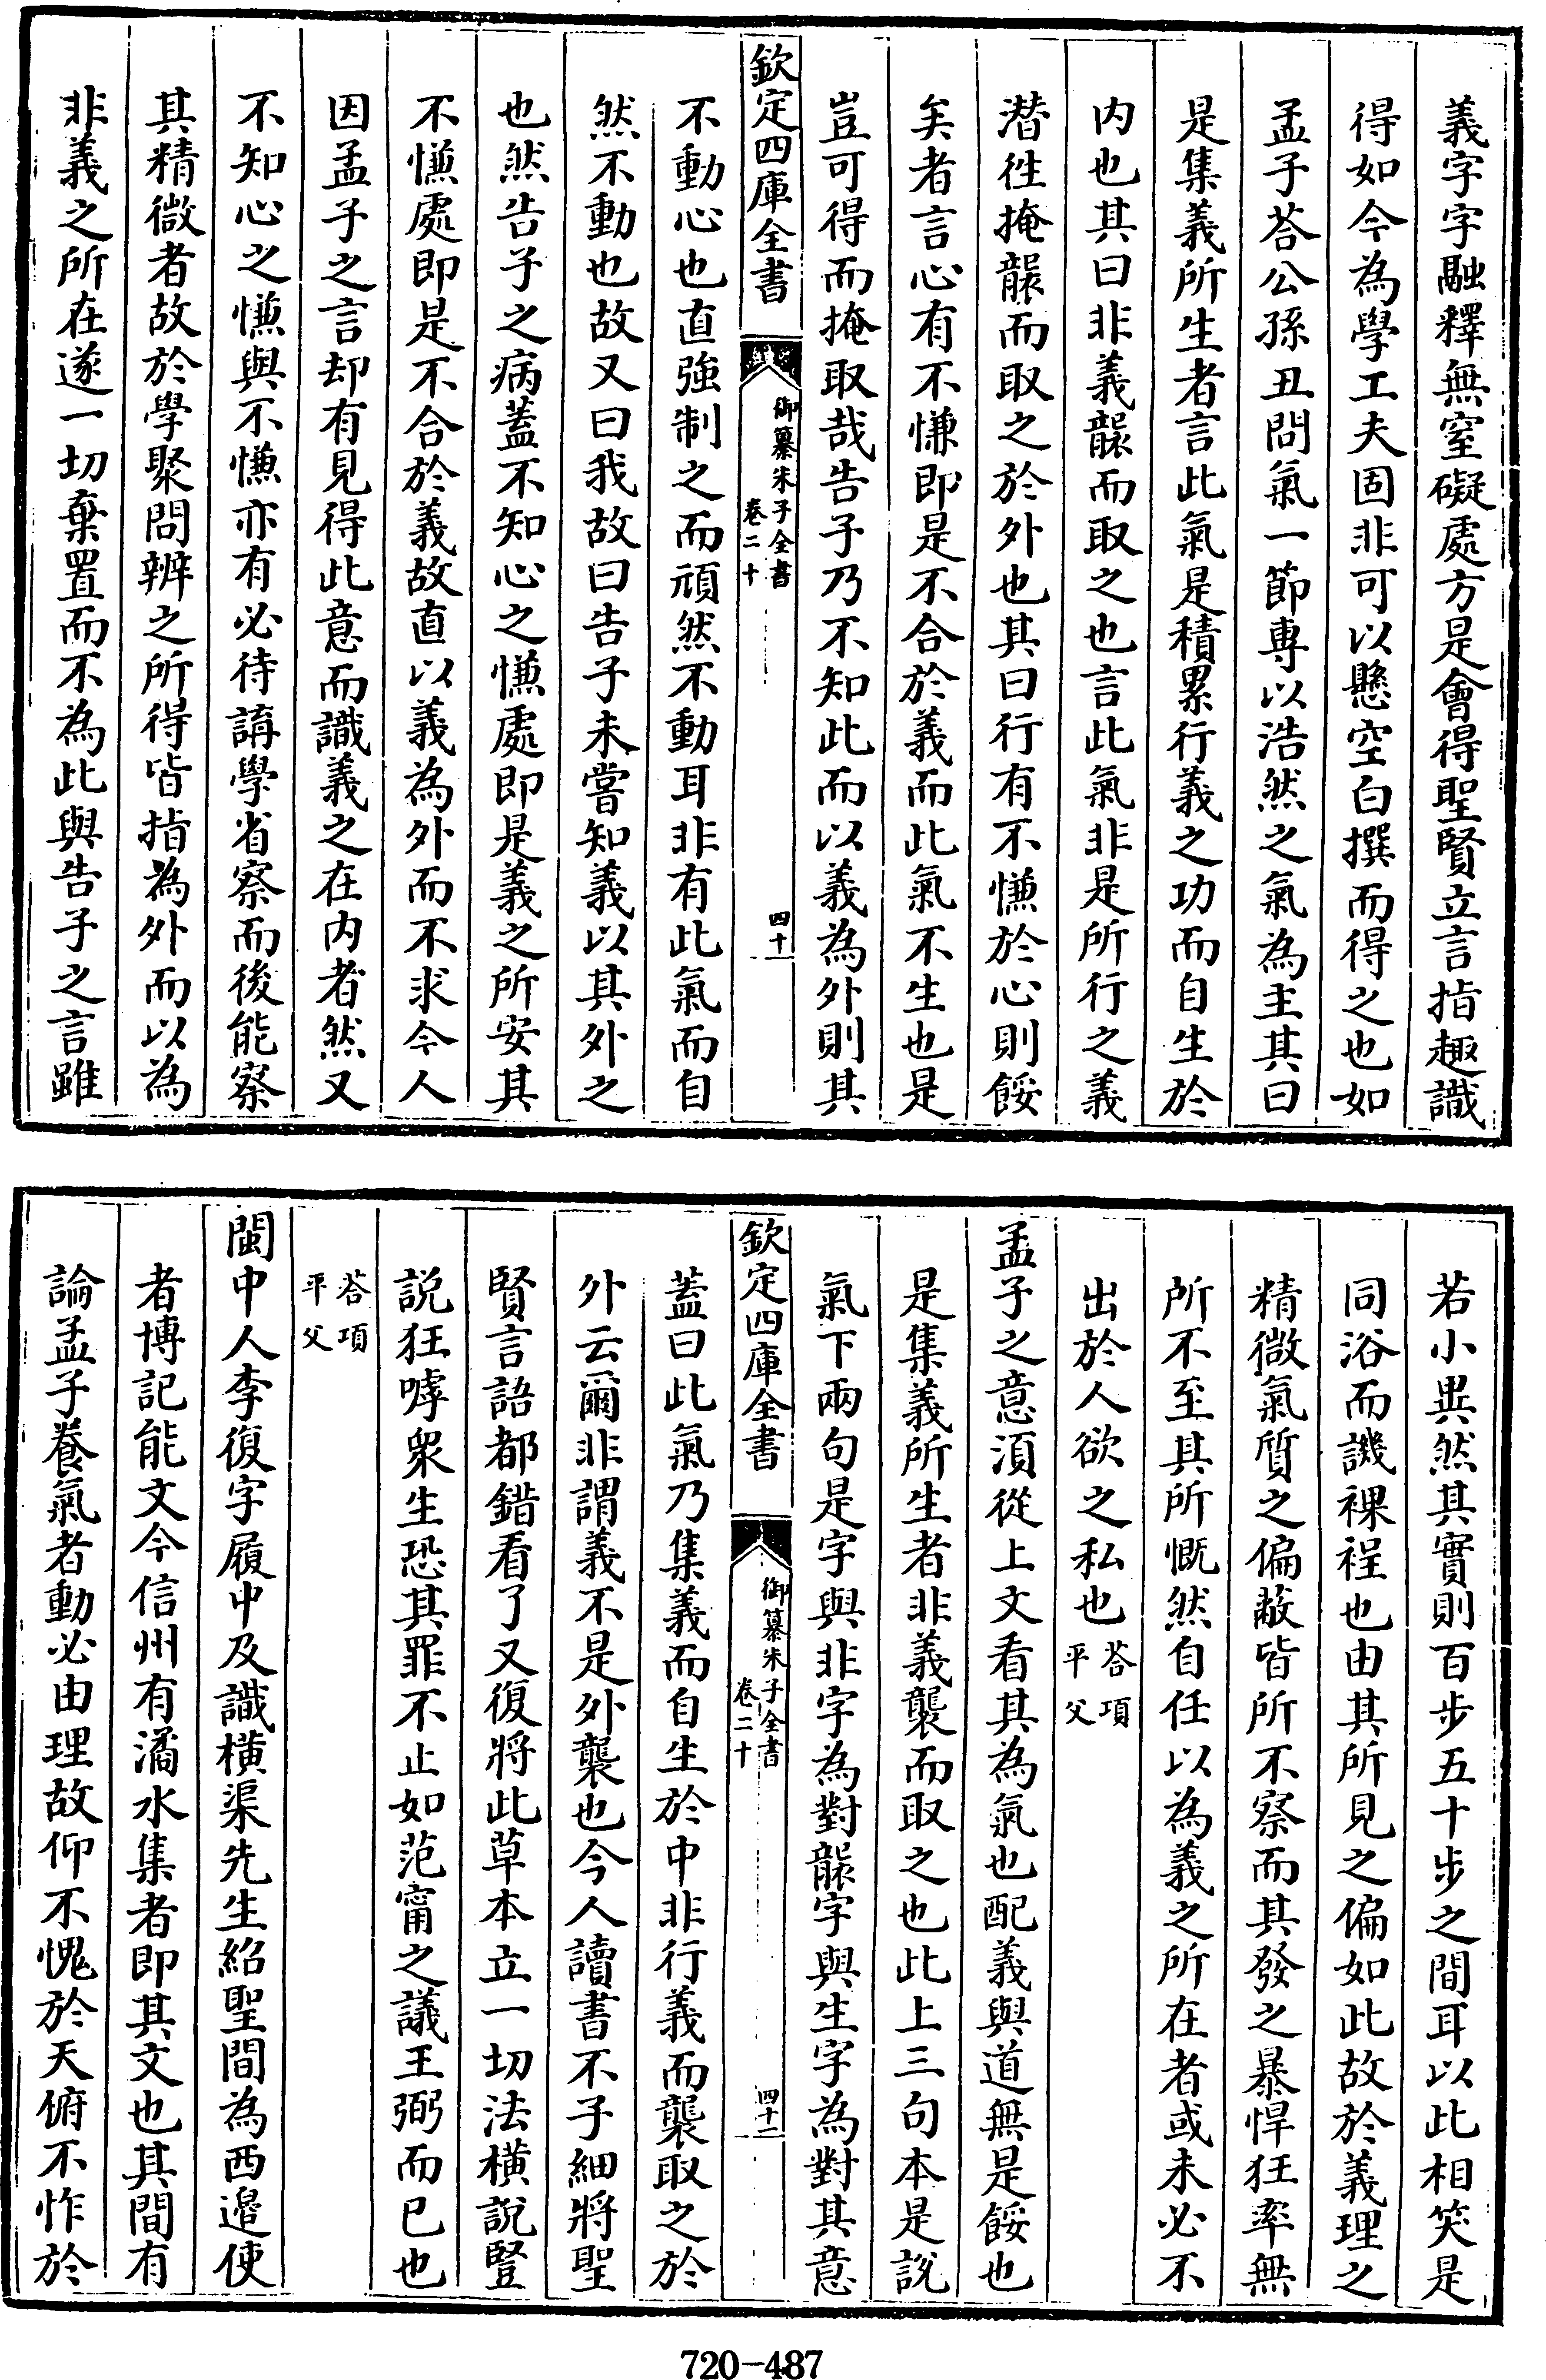 義字字融釋無窒礙處方是會得聖賢立言指趣識
得如今為學工夫固非可以懸空白撰而得之也如
孟子荅公孫丑問氣一節專以浩然之氣為主其曰
是集義所生者言此氣是積累行義之功而自生於
内也其曰非義襲而取之也言此氣非是所行之義
潛徃掩襲而取之於外也其曰行有不慊於心則餒
矣者言心有不慊即是不合於義而此氣不生也是
豈可得而掩取哉告子乃不知此而以義為外則其
欽定四庫全書
御纂朱子全書
卷二十
四十一
不動心也直強制之而頑然不動耳非有此氣而自
然不動也故又曰我故曰告子未嘗知義以其外之
也然告子之病蓋不知心之慊處即是義之所安其
不慊處即是不合於義故直以義為外而不求今人
因孟子之言却有見得此意而識義之在内者然又
不知心之慊與不慊亦有必待講學省察而後能察
其精微者故於學聚問辨之所得皆指為外而以為
非義之所在遂一切棄置而不為此與告子之言雖
若小異然其實則百步五十步之間耳以此相笑是
同浴而譏裸裎也由其所見之偏如此故於義理之
精微氣質之偏蔽皆所不察而其發之暴悍狂率無
所不至其所慨然自任以為義之所在者或未必不
出於人欲之私也荅項平父
孟子之意須從上文看其為氣也配義與道無是餒也
是集義所生者非義襲而取之也此上三句本是說
氣下兩句是字與非字為對襲字與生字為對其意
欽定四庫全書
御纂朱子全書
卷二十
四十二
蓋曰此氣乃集義而自生於中非行義而襲取之於
外云爾非謂義不是外襲也今人讀書不子細將聖
賢言語都錯看了又復將此草本立一切法橫說豎
說狂嘑衆生恐其罪不止如范甯之議王弼而已也
荅項平父
閩中人李復字履中及識橫渠先生紹聖間為西邉使
者博記能文今信州有潏水集者即其文也其間有
論孟子養氣者動必由理故仰不愧於天俯不怍於
720-487